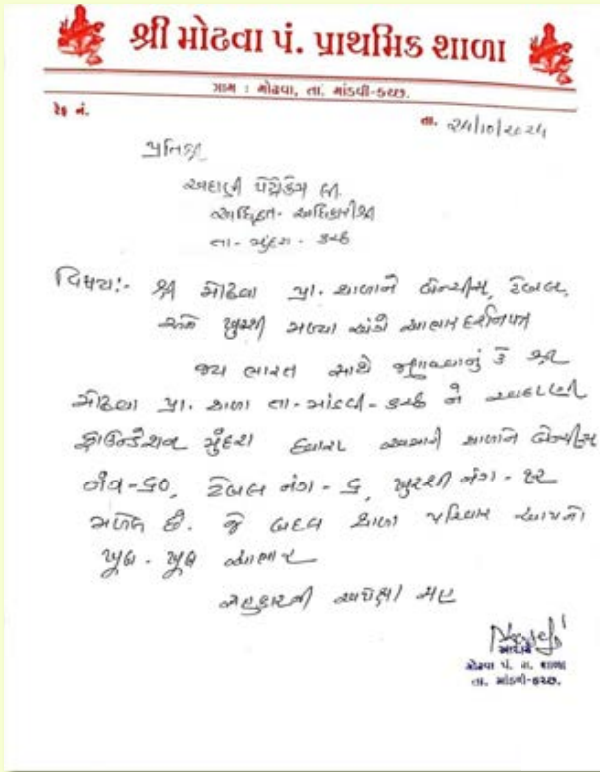 શ્રી મોઢવા પં. પ્રાથમિક શાળા
ગામ : મોઢવા, તા. માંડવી-કચ્છ.
રેફ નં.
તા. ૨૫/૧૦/૨૦૨૫
પ્રતિશ્રી
અદાણી લી.
અધિકૃત- અધિકારીશ્રી
તા- મુંદરા - કચ્છ
વિષય:- શ્રી મોઢવા પ્રા. શાળાને બેન્ચીસ, ટેબલ,
અને ખુરશી મળ્યા અંગે આભાર દર્શનપત્ર
જય ભારત સાથે જણાવવાનું કે શ્રી
મોઢવા પ્રા. શાળા તા-માંડવી-કચ્છ ને અદાણી
ફાઉન્ડેશન મુંદરા દ્વારા અમારી શાળાને બેન્ચીસ
નંગ-૬૦, ટેબલ નંગ - ૬, ખુરશી નંગ - ૧૨
મળેલ છે. જે બદલ શાળા પરિવાર આપનો
ખુબ - ખુબ આભાર
સહકારની અપેક્ષા સહ
આચાર્ય
મોઢવા પં. પ્રા. શાળા
તા. માંડવી-કચ્છ.